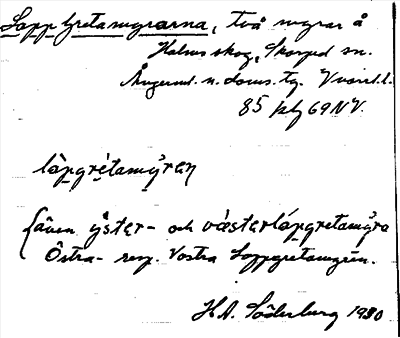 Lapp Gretamyrarna, två myrar å
Holms skog, Skorped sn.
Ångerml. n. doms. tg. V
85 kbl 69 NV.
låpgrétamỳren
(även ỳster- och västerlåpgretamỳra
Östra- resp. Västra Lappgretamyren.
H.A. Söderberg 1930